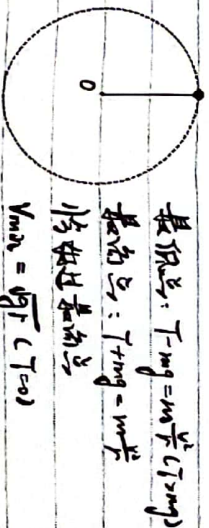 O
最低点：T-mg=m\frac{v^2}{r} (T>mg)
最高点：T+mg=m\frac{v^2}{r}
恰好过最高点
Vmin=\sqrt{gr} (T=0)